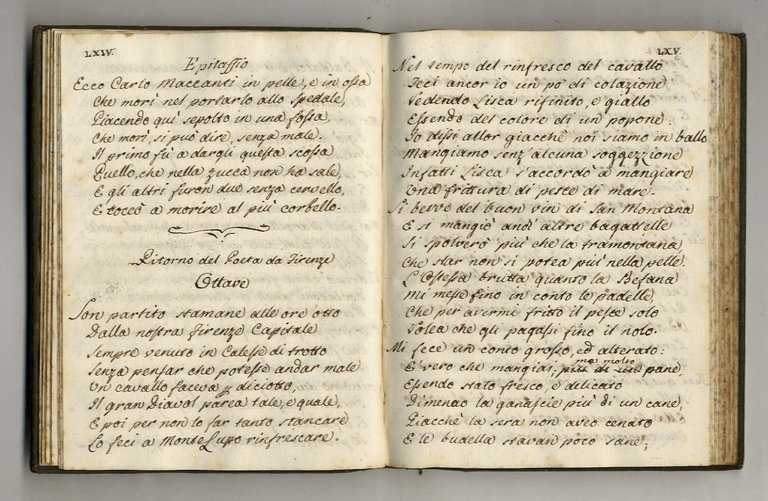 LXIV.
Epitaffio
Ecco Carlo Maccanti in pelle, e in ossa
Che morì nel portarlo allo Spedale,
Piacendo quì sepolto in una fossa,
Che morì, si può dire, senza male.
Il primo fù a dargli questa scossa
Quello, che nella zucca non ha sale,
E gli altri furon due senza cervello,
E toccò a morire al più corbello.
Ritorno del Poeta da Firenze
Ottave
Son partito stamane alle ore otto
Dalla nostra Firenze Capitale
Sempre venuto in Calesse di trotto
Senza pensar che potesse andar male
Un cavallo faceva p diciotto,
Il gran Diavol parea tale, e quale,
E poi per non lo far tanto stancare
Lo feci a Monte Lupo rinfrescare.
LXV.
Nel tempo del rinfresco del cavallo
Feci ancor io un pò di colazione
Vedendo Lisca rifinito, e giallo
Essendo del colore di un popone;
Io dissi allor giacchè noi siamo in ballo
Mangiamo senz'alcuna soggezzione
Infatti Lisca s'accordò a mangiare
Una frittura di pesce di mare.
Si bevve del buon vin di San Montana
E si mangiò anco altre bagatelle
Si spolverò più che la tramontana
Che star non si potea più nella pelle
L'Ostessa brutta quanto la Befana
Mi messe fino in conto le padelle
Che per avermi fritto il pesce solo
Volea che gli pagassi fino il nolo.
Mi fece un conto grosso, ed alterato:
E' vero che mangiai, ma molto pane
Essendo stato fresco, e delicato
Dimenao la ganascie più di un cane,
Giacchè la sera non aveo cenato
E le budella stavan poco sane;